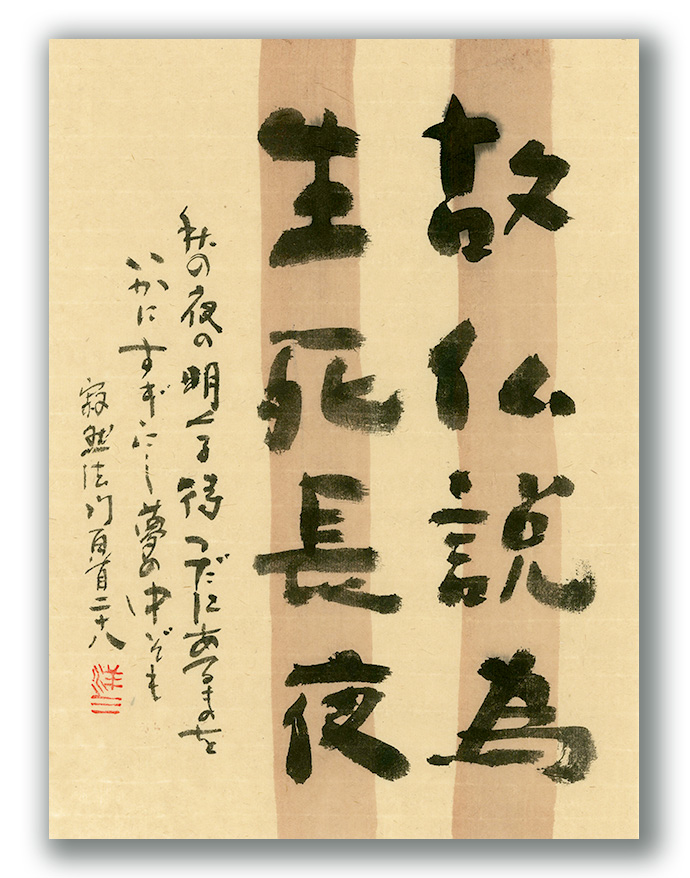 故仏説為
生死長夜
秋の夜の明くる待つだにあるものを
いかにすぎにし夢の中ぞも
寂然法門百首二十八
洋二